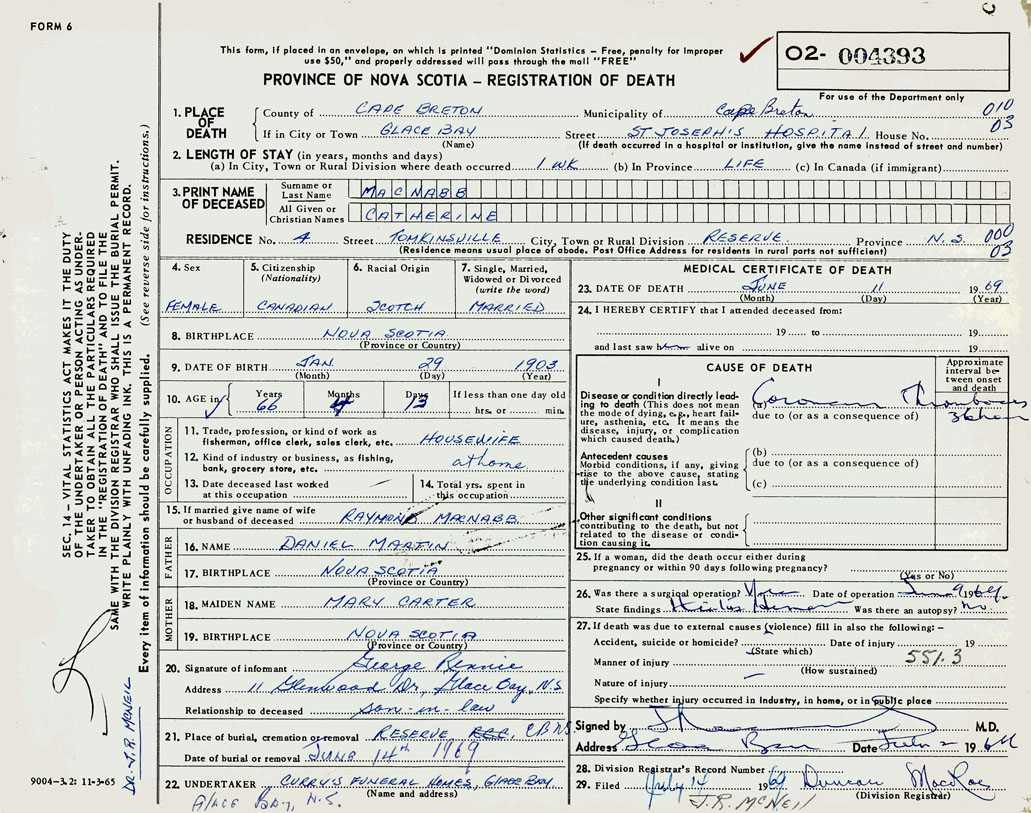 FORM 6
This form, if placed in an envelope, on which is printed "Dominion Statistics – Free, penalty for improper
use $50," and properly addressed will pass through the mail "FREE"
PROVINCE OF NOVA SCOTIA – REGISTRATION OF DEATH
02- 004393
For use of the Department only
1. PLACE OF DEATH County of CAPE BRETON Municipality of Cape Breton 010
If in City or Town GLACE BAY Street ST JOSEPH'S HOSPITAL House No. 03
(Name) (If death occurred in a hospital or institution, give the name instead of street and number)
2. LENGTH OF STAY (in years, months and days)
(a) In City, Town or Rural Division where death occurred 1 WK (b) In Province LIFE (c) In Canada (if immigrant)
3. PRINT NAME OF DECEASED Surname or Last Name MACNABB
All Given or Christian Names CATHERINE
RESIDENCE No. 4 Street TOMKINSVILLE City, Town or Rural Division RESERVE Province N.S. 000
(Residence means usual place of abode. Post Office Address for residents in rural parts not sufficient) 03
4. Sex FEMALE
5. Citizenship (Nationality) CANADIAN
6. Racial Origin SCOTCH
7. Single, Married, Widowed or Divorced (write the word) MARRIED
8. BIRTHPLACE NOVA SCOTIA
(Province or Country)
9. DATE OF BIRTH JAN. 29 1903
(Month) (Day) (Year)
10. AGE in Years 66 Months 4 Days 13 If less than one day old
hrs. or min.
OCCUPATION
11. Trade, profession, or kind of work as
fisherman, office clerk, sales clerk, etc. HOUSEWIFE
12. Kind of industry or business, as fishing,
bank, grocery store, etc. at home
13. Date deceased last worked
at this occupation
14. Total yrs. spent in
this occupation
15. If married give name of wife
or husband of deceased RAYMOND MACNABB
FATHER
16. NAME DANIEL MARTIN
17. BIRTHPLACE NOVA SCOTIA
(Province or Country)
MOTHER
18. MAIDEN NAME MARY CARTER
19. BIRTHPLACE NOVA SCOTIA
(Province or Country)
20. Signature of informant George Rennie
Address 11 Glenwood Dr, Glace Bay, N.S
Relationship to deceased son-in-law
21. Place of burial, cremation or removal RESERVE CB NS
Date of burial or removal JUNE 14th 1969
22. UNDERTAKER CURRY'S FUNERAL HOMES, GLACE BAY
(Name and address)
GLACE BAY, N.S.
MEDICAL CERTIFICATE OF DEATH
23. DATE OF DEATH JUNE 11 1969
(Month) (Day) (Year)
24. I HEREBY CERTIFY that I attended deceased from:
19 to 19
and last saw h alive on 19
CAUSE OF DEATH
Approximate interval between onset and death
I
Disease or condition directly lead-
ing to death (This does not mean
the mode of dying, e.g., heart fail-
ure, asthenia, etc. It means the
disease, injury, or complication
which caused death.)
(a) Coronary Thrombosis
due to (or as a consequence of)
Antecedent causes
Morbid conditions, if any, giving
rise to the above cause, stating
the underlying condition last.
(b)
due to (or as a consequence of)
(c)
II
Other significant conditions
contributing to the death, but not
related to the disease or condi-
tion causing it.
25. If a woman, did the death occur either during
pregnancy or within 90 days following pregnancy?
(Yes or No)
26. Was there a surgical operation? Yes Date of operation June 9 1969.
State findings Hiatus Hernia Was there an autopsy? No.
27. If death was due to external causes (violence) fill in also the following: –
Accident, suicide or homicide? Date of injury 19
(State which) 551.3
Manner of injury
(How sustained)
Nature of injury
Specify whether injury occurred in Industry, in home, or in public place
Signed by M.D.
Address Glace Bay Date July 2 1969
28. Division Registrar's Record Number
29. Filed July 14 1969 Duncan MacRae
(Division Registrar)
J.R. MCNEIL
SEC. 14 – VITAL STATISTICS ACT MAKES IT THE DUTY
OF THE UNDERTAKER OR PERSON ACTING AS UNDER-
TAKER TO OBTAIN ALL THE PARTICULARS REQUIRED
IN THE "REGISTRATION OF DEATH" AND TO FILE THE
SAME WITH THE DIVISION REGISTRAR WHO SHALL ISSUE THE BURIAL PERMIT.
WRITE PLAINLY WITH UNFADING INK. THIS IS A PERMANENT RECORD.
Every item of information should be carefully supplied. (See reverse side for instructions.)
DR. J.R. MCNEIL
9004-3.2: 11-3-65